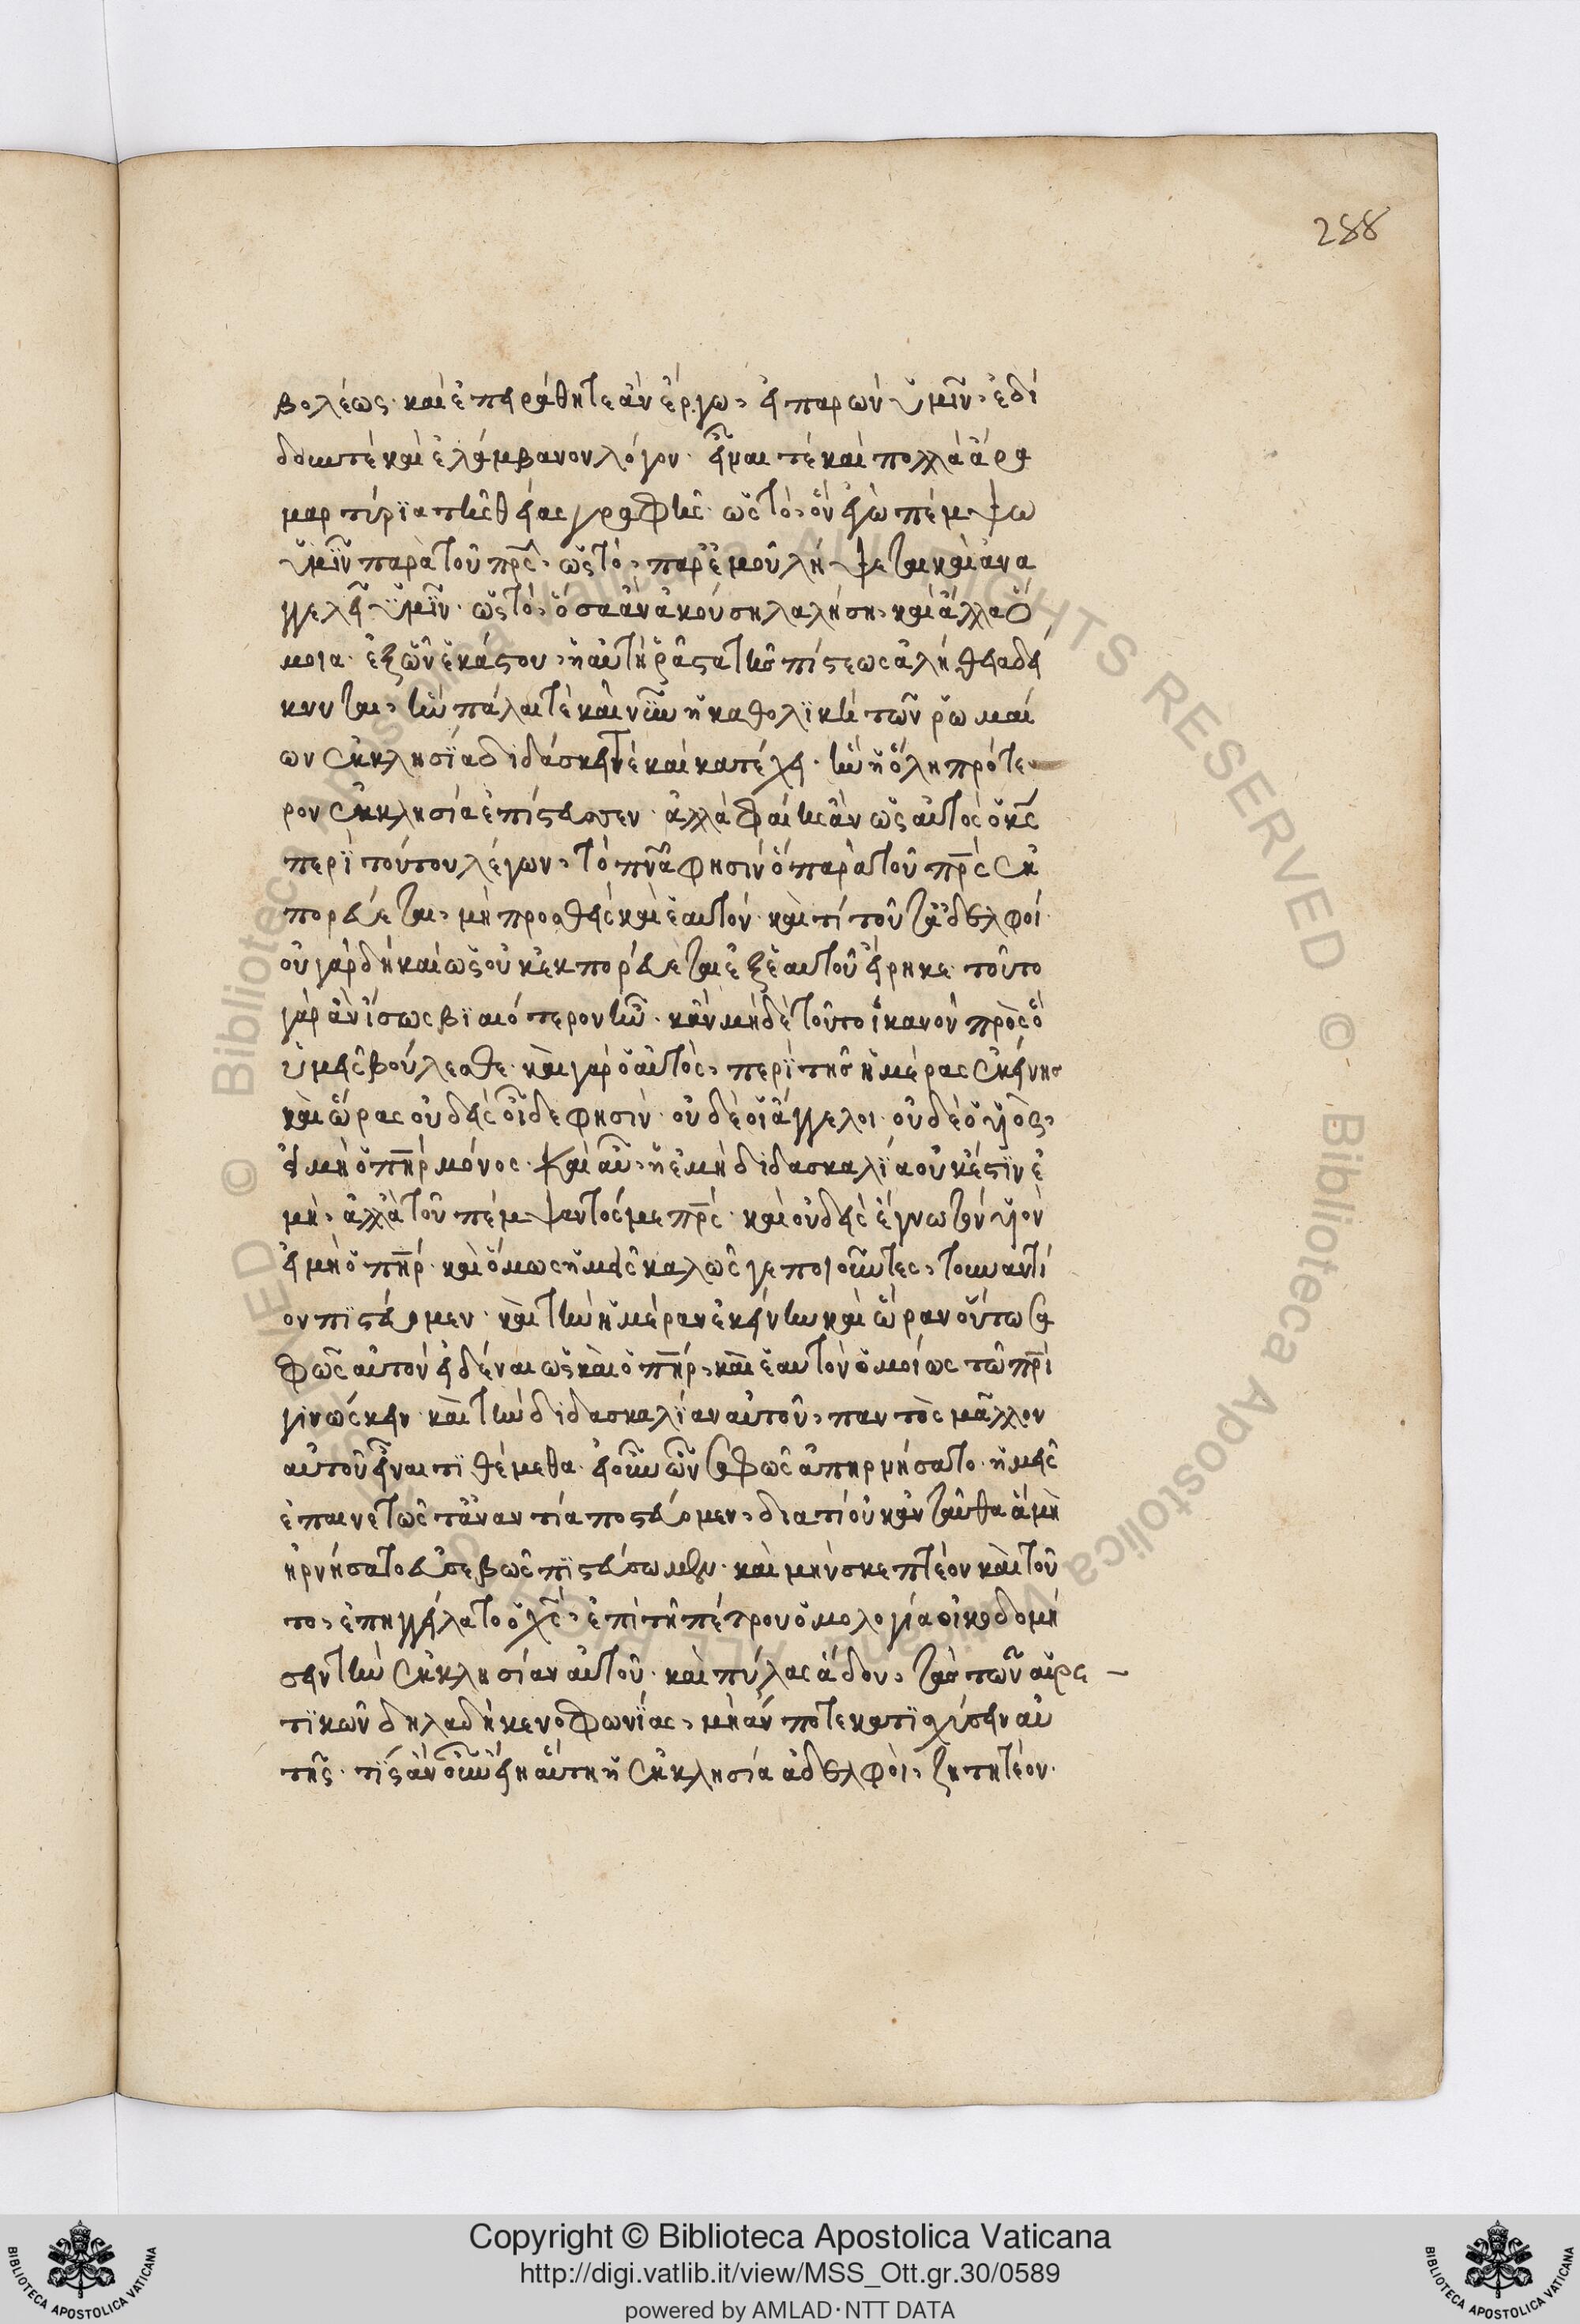 288
βολέως· καὶ ἐπειράθητε ἂν ἔργω, εἰ παρὼν ὑμῖν, ἐδί
δουν τὲ καὶ ἐλάμβανον λόγον· εἶναι τὲ καὶ πολλὰ ἄρα
μαρτύρϊα τῆς θείας γραφῆς· ὡς τό, ὃν ἐγὼ πέμψω
ὑμῖν παρὰ τοῦ πρς, ὡς τό, παρ' ἐμοῦ λήψεται καὶ ἀνα
γγελεῖ ὑμῖν· ὡς τό, ὅσα ἂν ἀκούση λαλήση, καὶ ἄλλα ὅ
μοια· ἐξ ὧν ἑκάστου, ἡ αὐτὴ ῥᾶστα τῆς πίστεως ἀλήθεια δεί
κνυται, ἣν πάλαι τὲ καὶ νῦν ἡ καθολϊκὴ τῶν ῥωμαί
ων ἐκκλησϊα διδάσκει τὲ καὶ κατέχει· ἣν ἡ ὅλη πρότε
ρον ἐκκλησία ἐπίστευσεν· ἀλλὰ φαίης ἂν ὡς αὐτὸς ὁ κς
περϊ τούτου λέγων, τὸ πνα φησὶν ὃ παρὰ τοῦ πρς ἐκ
πορεύεται, μὴ προσθεὶς καὶ ἑαυτόν· καὶ τί τοῦτ' ἀδελφοί·
οὐ γὰρ δὴ καὶ ὡς οὐκ ἐκπορεύεται ἐξ ἑαυτοῦ εἴρηκε· τοῦτο
γὰρ ἂν ἴσως βϊαιότερον ἦν· κἂν μηδὲ τοῦτο ἱκανὸν πρὸς ὃ
ὑμεῖς βούλεσθε· καὶ γὰρ ὁ αὐτὸς, περϊ τῆς ἡμέρας ἐκείνης
καὶ ὥρας οὐδεὶς οἶδε φησὶν· οὐδὲ οἱ ἄγγελοι· οὐδὲ ὁ υἱὸς,
εἰ μὴ ὁ πηρ μόνος· καὶ αὖ, ἡ ἐμὴ διδασκαλϊα οὐκ ἔστϊν ἐ
μὴ, ἀλλὰ τοῦ πέμψαντός με πρς· καὶ οὐδεὶς ἔγνω τὸν υἱὸν
εἰ μὴ ὁ πηρ· καὶ ὅμως ἡμεῖς καλῶς γε ποιοῦντες, τοὐναντί
ον πϊστεύομεν· καὶ τὴν ἡμέραν ἐκείνην καὶ ὥραν οὕτω σα
φῶς αὐτὸν εἰδέναι ὡς καὶ ὁ πηρ, καὶ ἑαυτὸν ὁμοίως τῶ πρι
γινώσκειν· καὶ τὴν διδασκαλϊαν αὐτοῦ, παντὸς μᾶλλον
αὐτοῦ εἶναι τϊθέμεθα· εἰ οὖν ὧν σαφῶς ἀπηρνήσατο· ἡμεῖς
ἐπαινετῶς τἀναντία πιστεύομεν, διατί οὐκ ἐνταῦθα ἃ μὴ
ἠρνήσατο εὐσεβῶς πϊστεύσωμεν· καὶ μὴν σκεπτέον καὶ τοῦ
το, ἐπηγγείλατο ὁ χς, ἐπὶ τῆ πέτρου ὁμολογία οἰκοδομή
σειν τὴν ἐκκλησίαν αὐτοῦ· καὶ πύλας ἅδου, τὰς τῶν αἱρε
τϊκῶν δηλαδὴ κενοφωνϊας, μὴ ἄν ποτε κατϊσχύσειν αὐ
τῆς· τϊς ἂν οὖν εἴη αὕτη ἡ ἐκκλησία ἀδελφοὶ, ζητητέον·
Copyright © Biblioteca Apostolica Vaticana
http://digi.vatlib.it/view/MSS_Ott.gr.30/0589
powered by AMLAD·NTT DATA